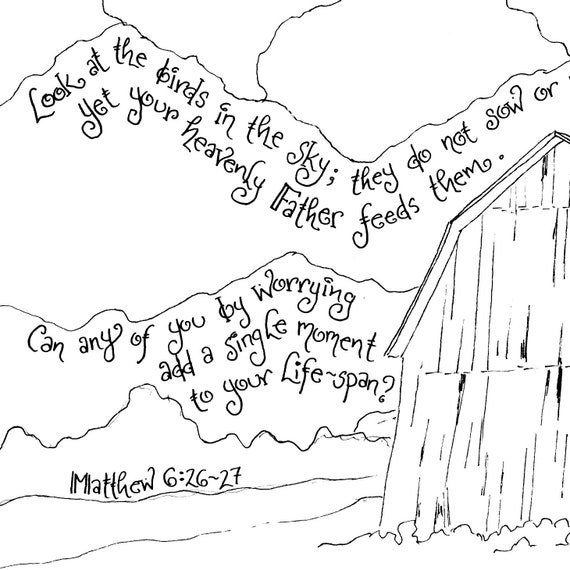 Look at the birds in the sky; they do not sow or
yet your heavenly Father feeds them.
Can any of you by worrying
add a single moment
to your life~span?
Matthew 6:26~27